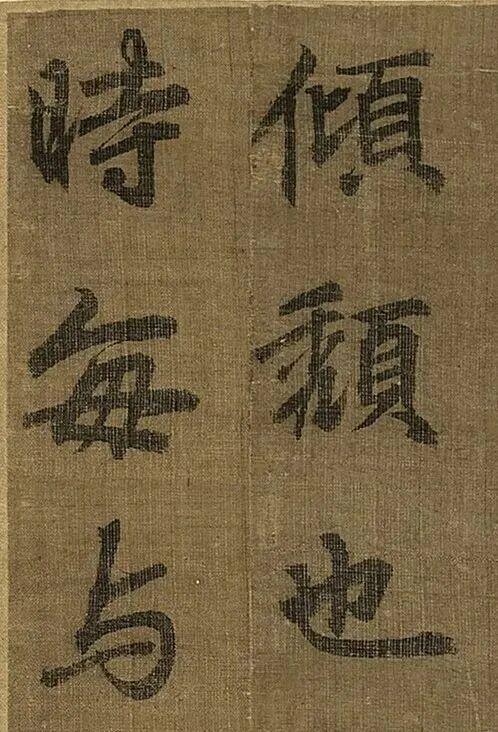 傾頹也
時每与